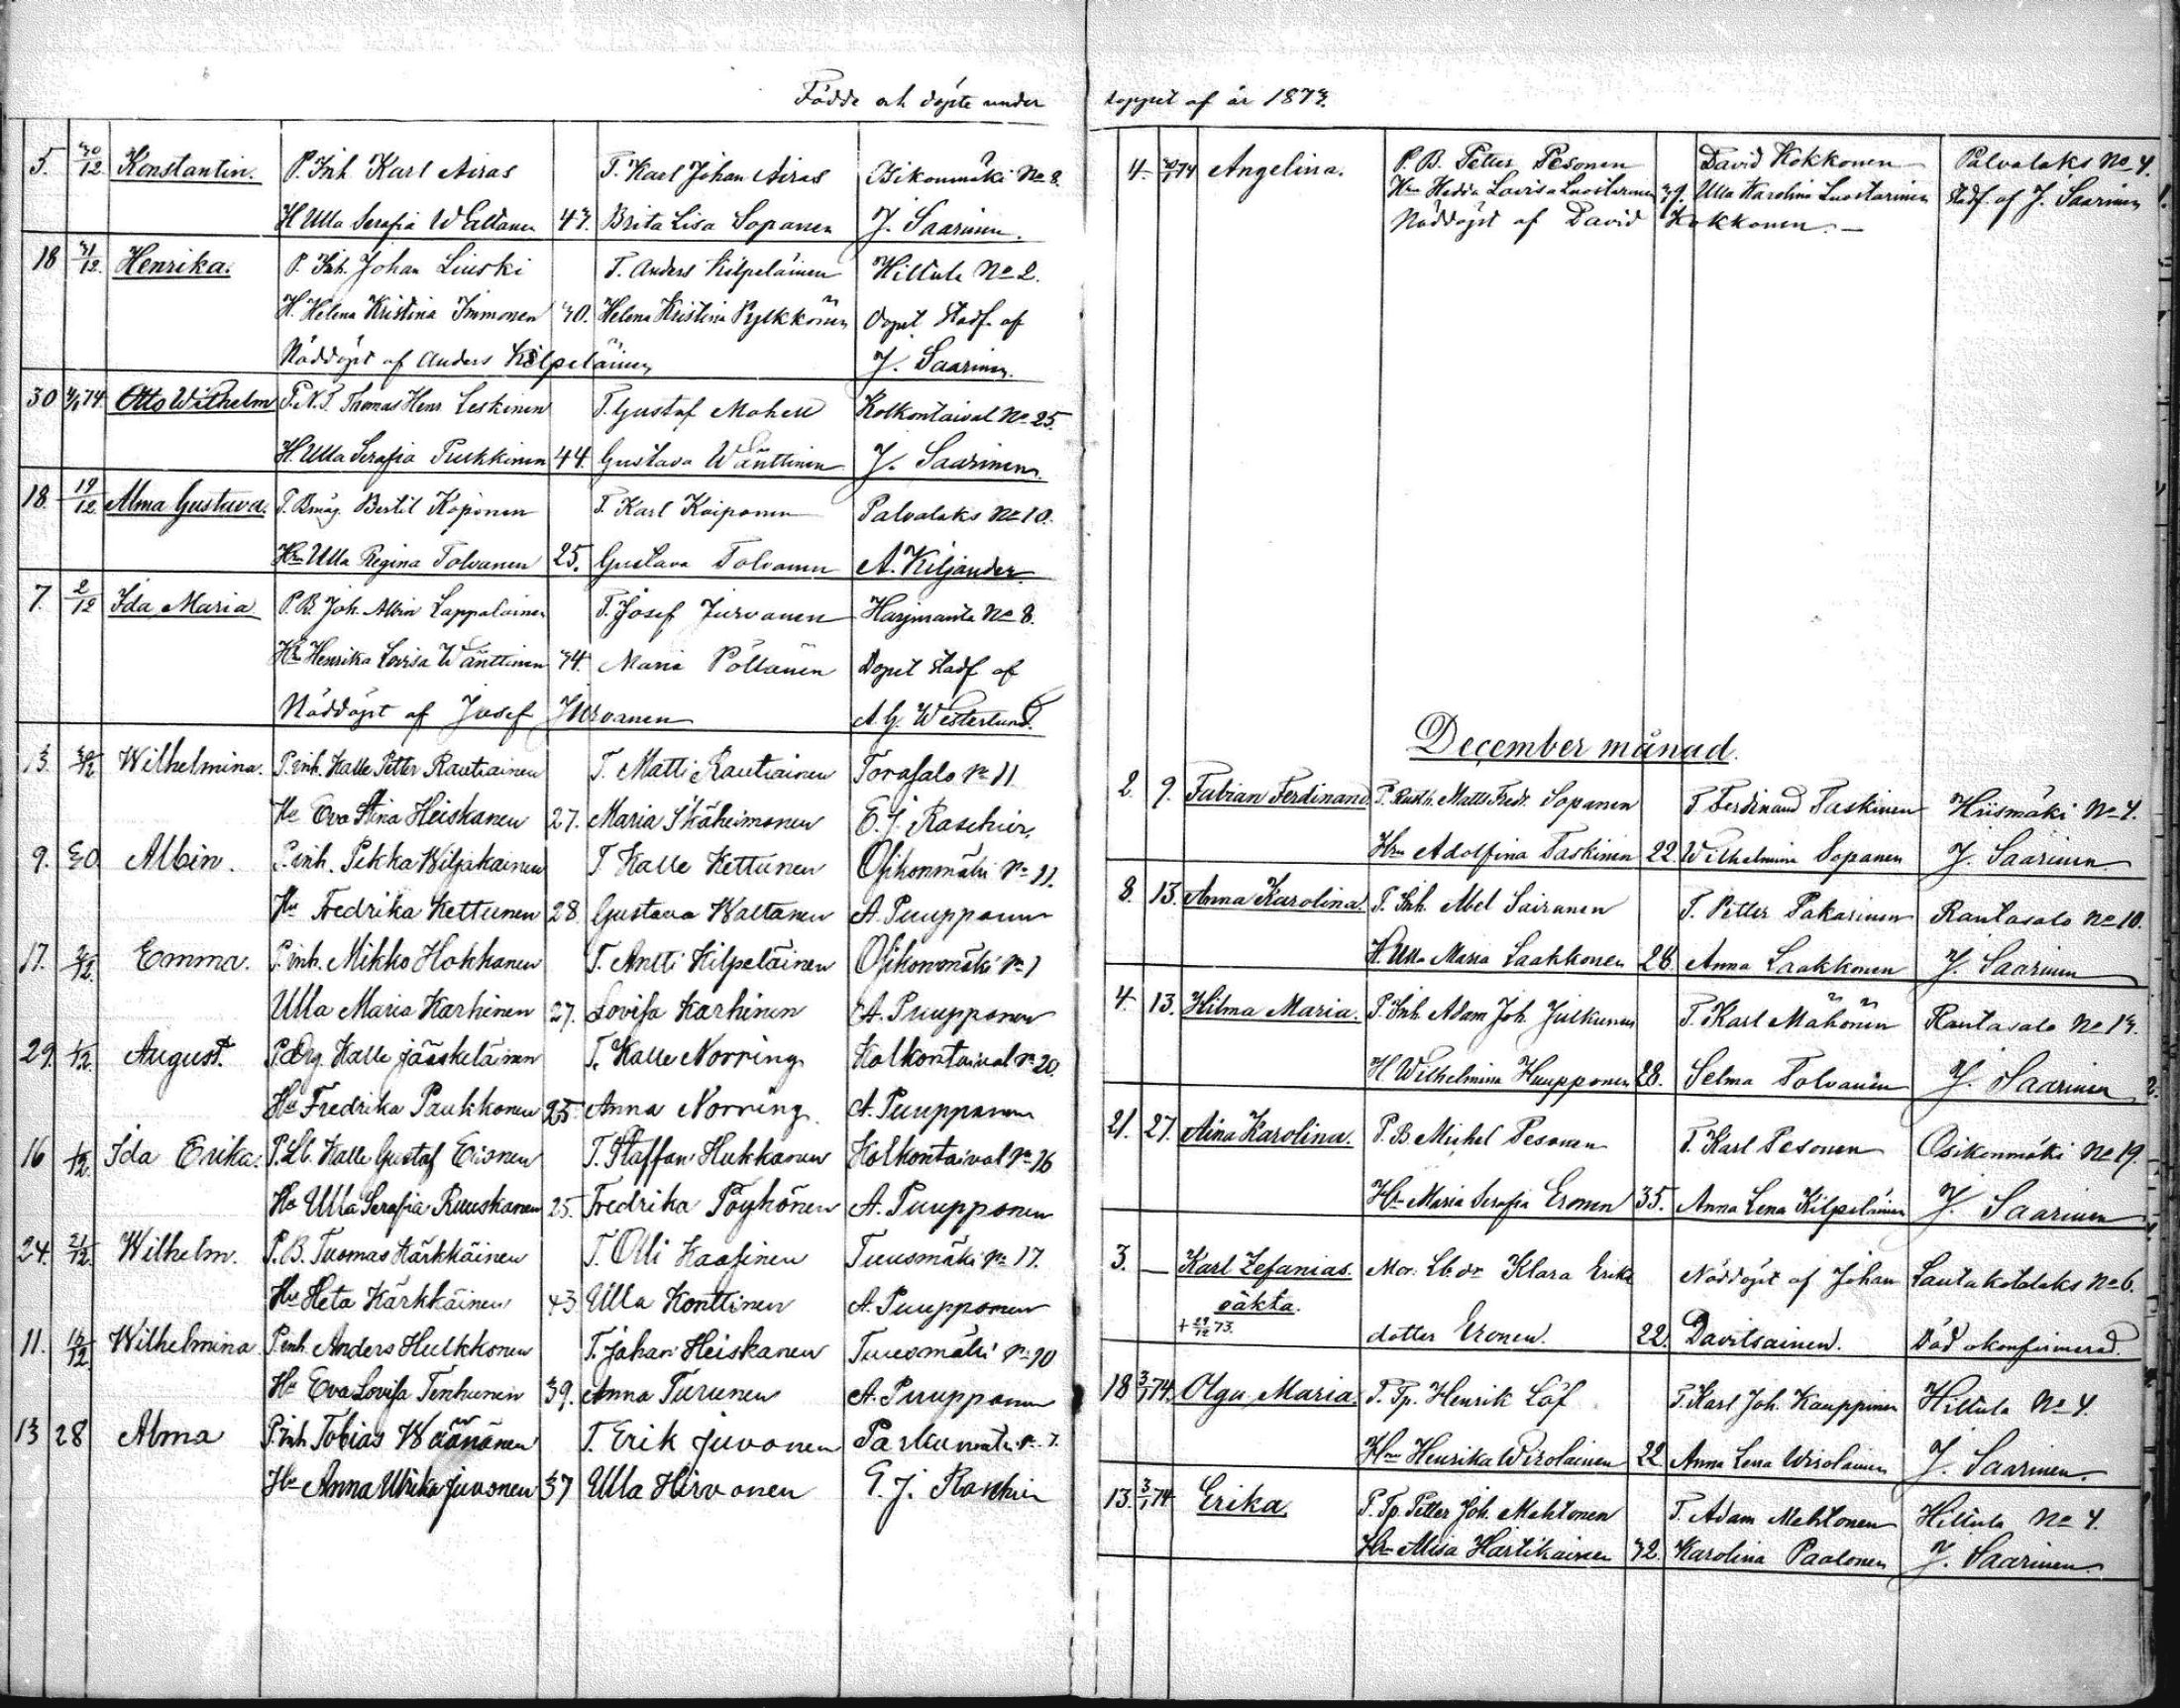 Födde och döpte under
5. 30/12. Konstantin. P. Inh Karl Airas T. Karl Johan Airas Osikonmäki No 8.
H Ulla Serafia Wattanen 43. Brita Lisa Sopanen J. Saarinen.
18 31/12. Henrika. P. Inh. Johan Liuski T. Anders Kilpeläinen Hiltula No 2.
H. Helena Kristina Immonen 30. Helena Kristina Pylkkönen Dopet stadf. af
Nöddöpt af Anders Kilpeläinen J. Saarinen.
30 74. Otto Wilhelm P.N.T. Thomas Henr Leskinen T. Gustaf Mohell Kolkontaival No 25.
H. Ulla Serafia Pulkkinen 44. Gustava Wänttinen J. Saarinen.
18. 19/12. Alma Gustava. P. Bmåg. Bertil Koponen T. Karl Koiponen Palvalaks No 10.
Hru Ulla Regina Tolvanen 25. Gustava Tolvanen A. Kiljander.
7. 2/12 Ida Maria P. B. Joh. Albin Lappalainen T. Josef Jurvanen Harjuranta No 8.
Hru Henrika Lovisa Wänttinen 34. Maria Pöllänen Dopet stadf af
Nöddöpt af Josef Jurvanen A. G. Westerlund.
13. Wilhelmina. P. inh. Kalle Petter Rautiainen T. Matti Rautiainen Torasalo No 11
Hu Eva Stina Heiskanen 27. Maria Ikäheimonen E. J. Raschier.
9. 30. Albin. P. inh. Pekka Wiljakainen T Kalle Kettunen Osikonmäki No 11.
Hu Fredrika Kettunen 28. Gustava Waltanen A. Puupponen
17. Emma. P. inh. Mikko Hokkanen T. Antti Kilpeläinen Osikonmäki No 1
Ulla Maria Karhinen 27. Lovisa Karhinen A. Puupponen
29. 1/12. August. P. Drg. Kalle Jääskeläinen T. Kalle Norring Kolkontaival No 20.
Hu Fredrika Paukkonen 25. Anna Norring. A. Puupponen
16 Ida Erika. P. Lb. Kalle Gustaf Eronen T. Staffan Hukkanen Kolkontaival No 16
Hu Ulla Serafia Ruuskanen 25. Fredrika Pöyhönen A. Puupponen
24. 21/12. Wilhelm. P. B. Tuomas Kärkkäinen T. Olli Kaasinen Tuusmäki No 17.
Hu Heta Kärkkäinen 43 Ulla Konttinen A. Puupponen
11. Wilhelmina P. inh Anders Hulkkonen T. Johan Heiskanen Tuusmäki No 10
Hu Eva Lovisa Tenhunen 39. Anna Turunen A. Puupponen
13 28 Alma P. inh Tobias Wäänänen T. Erik Juvonen Parkumäki No 7.
Hu Anna Ulrika Juvonen 37 Ulla Hirvonen E. J. Raschier
loppet af år 1873.
4. 74 Angelina. P. B. Petter Pesonen David Kokkonen Palvalaks No 4.
Hru Hedda Lovisa Luostarinen 39. Ulla Karolina Luostarinen Stadf. af J. Saarinen
Nöddöpt af David Kokkonen.
December månad.
2. 9. Fabian Ferdinand. P. Rusth. Matts Fredr. Sopanen T Ferdinand Taskinen Hiismäki No 4.
Hru Adolfina Taskinen 22. Wilhelmina Sopanen J. Saarinen
8. 13. Anna Karolina. P. Inh. Abel Sairanen T. Petter Pakarinen Rantasalo No 10.
H. Ulla Maria Laakkonen 28. Anna Laakkonen J. Saarinen
4. 13. Hilma Maria. P. Inh. Adam Joh. Julkunen T. Karl Mähönen Rantasalo No 13.
H Wilhelmina Huupponen 28. Selma Tolvanen J. Saarinen
21. 27. Aina Karolina. P. B. Michel Pesonen T. Karl Pesonen Osikonmäki No 19.
Hru Maria Serafia Eronen 35. Anna Lena Kilpeläinen J. Saarinen
3. — Karl Zefanias. Mor. Lb. dr Klara Erika Nöddöpt af Johan Lautakotalaks No 6.
oäkta.
+ 29/12 73. dotter Eronen. 22. Davitsainen. Död okonfirmerad.
18 3/1 74. Olga Maria. P. Tp. Henrik Löf T. Karl Joh. Kauppinen Hiltula No 4.
Hru Henrika Wirolainen 22. Anna Lena Wirolainen J. Saarinen.
13. 3/1 74 Erika. P. Tp. Petter Joh. Mehtonen T. Adam Mehtonen Hiltula No 4.
Hru Miisa Hartikainen 32. Karolina Paalonen J. Saarinen.